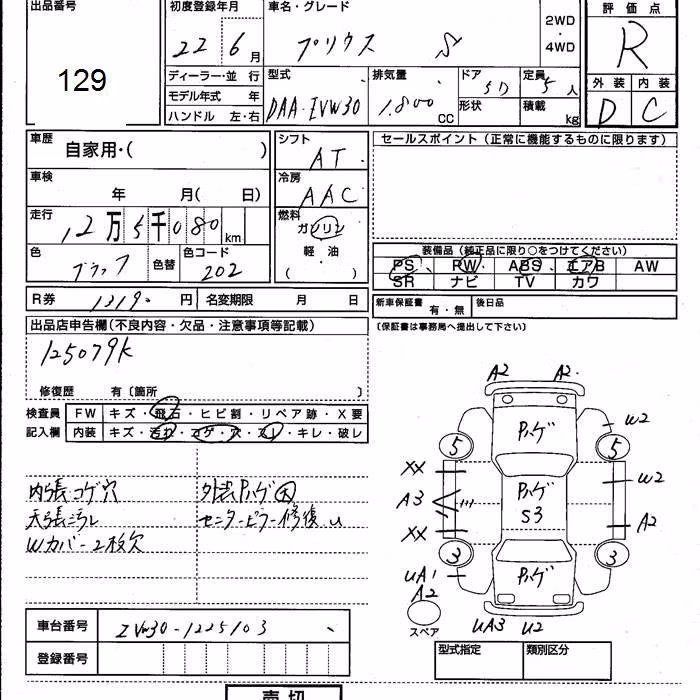 出品番号
129
初度登録年月
22 6月
車名・グレード
プリウス S
2WD
・
4WD
評価点
R
外装 内装
D C
ディーラー・並行
モデル年式 年
ハンドル 左・右
型式
DAA-ZVW30
排気量
1,800 CC
ドア
5D
形状
定員
5人
積載
kg
車歴
自家用・( )
車検
年 月( 日)
走行
12万5千080km
色
ブラック
色替
色コード
202
シフト
AT
冷房
AAC
燃料
ガソリン
軽油
( ・ )
セールスポイント(正常に機能するものに限ります)
装備品(純正品に限り○をつけてください)
PS PW ABS エアB AW
SR ナビ TV カワ
R券 円
名変期限 月 日
新車保証書 有・無
後日品
(保証書は事務局へ提出して下さい)
出品店申告欄(不良内容・欠品・注意事項等記載)
125079K
修復歴 有〔箇所 〕
検査員
記入欄
FW キズ・飛石・ヒビ割・リペア跡・X要
内装 キズ・汚れ・コゲ・穴・スレ・キレ・破レ
内張コゲ穴
天張ニラレ
Wカバー2枚欠
外装ハゲ大
センターピラー修復
A2 A2
ハゲ
W2
5 5
XX
ハゲ
S3
W2
A3
A2
XX
3 3
UA1
ハゲ
A2
スペア
UA3 U2
車台番号
ZVW30-1225103
登録番号
型式指定
類別区分
売切